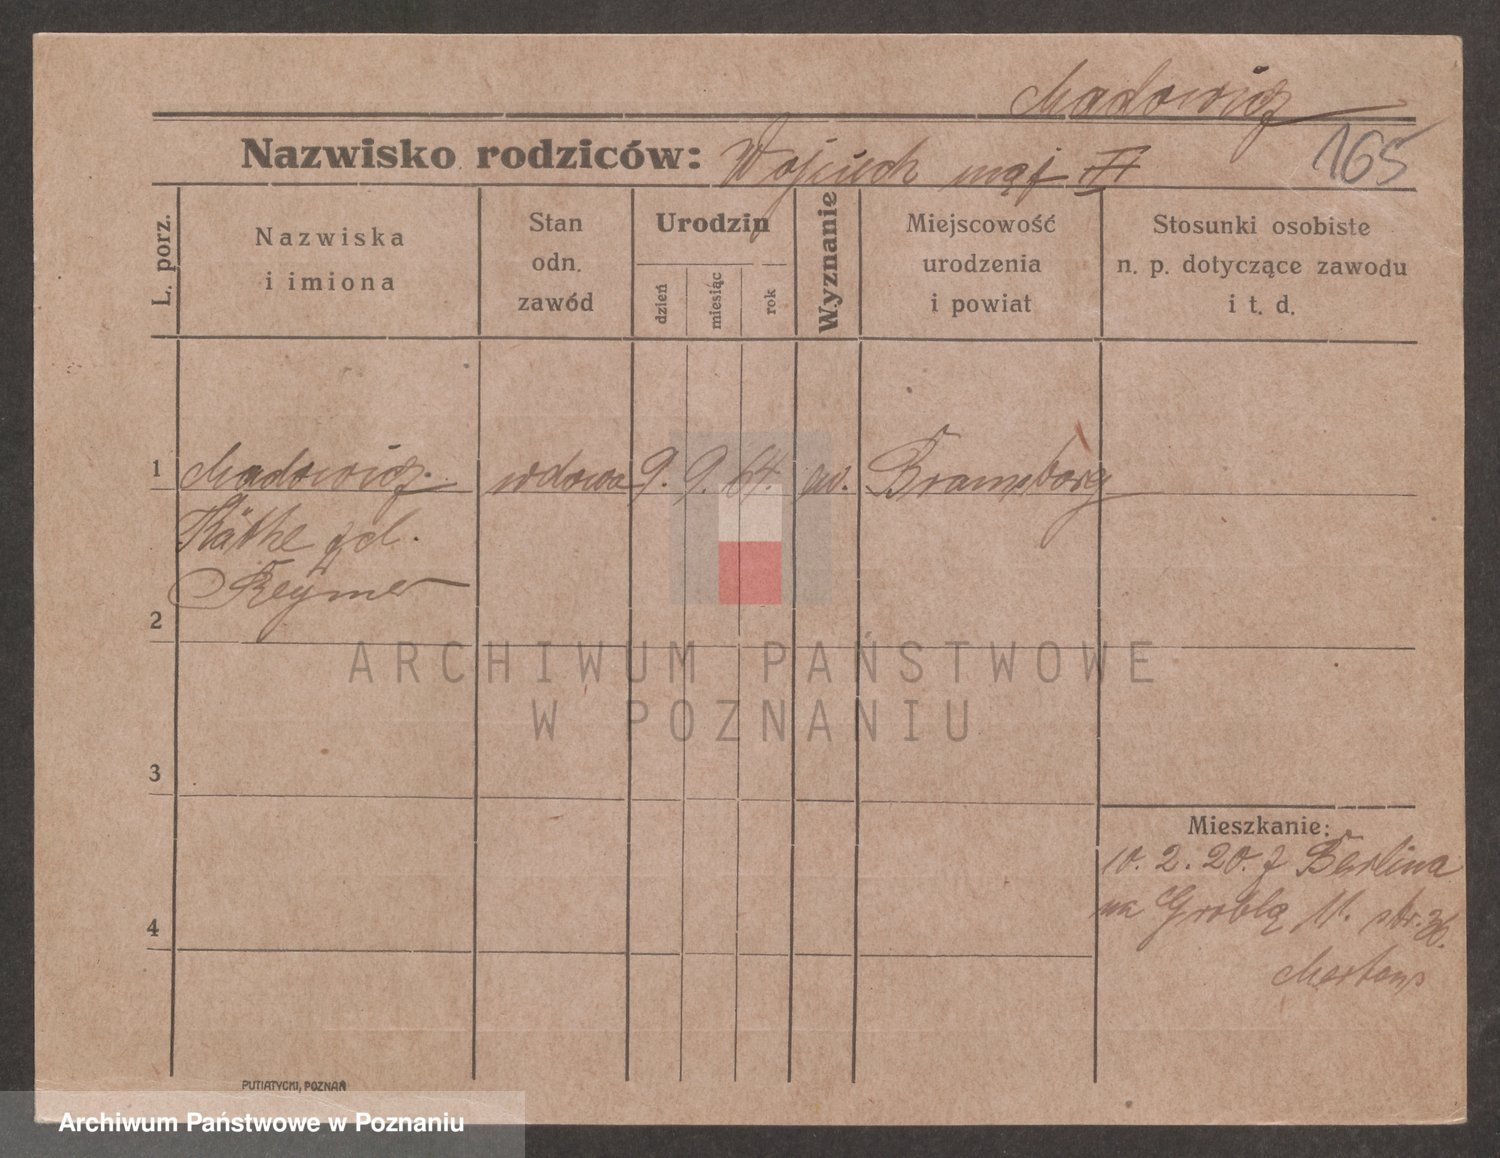 Madowicz
Nazwisko rodziców: Wojciech mąż II
165
L. porz.
Nazwiska
i imiona
Stan
odn.
zawód
Urodzin
dzień
miesiąc
rok
Wyznanie
Miejscowość
urodzenia
i powiat
Stosunki osobiste
n. p. dotyczące zawodu
i t. d.
1 Madowicz wdowa 9. 9. 64. ew.
Käthe
2
ARCHIWUM PAŃSTWOWE
W POZNANIU
3
Mieszkanie:
10. 2. 20. z Berlina
na Groblą 11. str. 36.
4
PUTIATYCKI, POZNAŃ
Archiwum Państwowe w Poznaniu